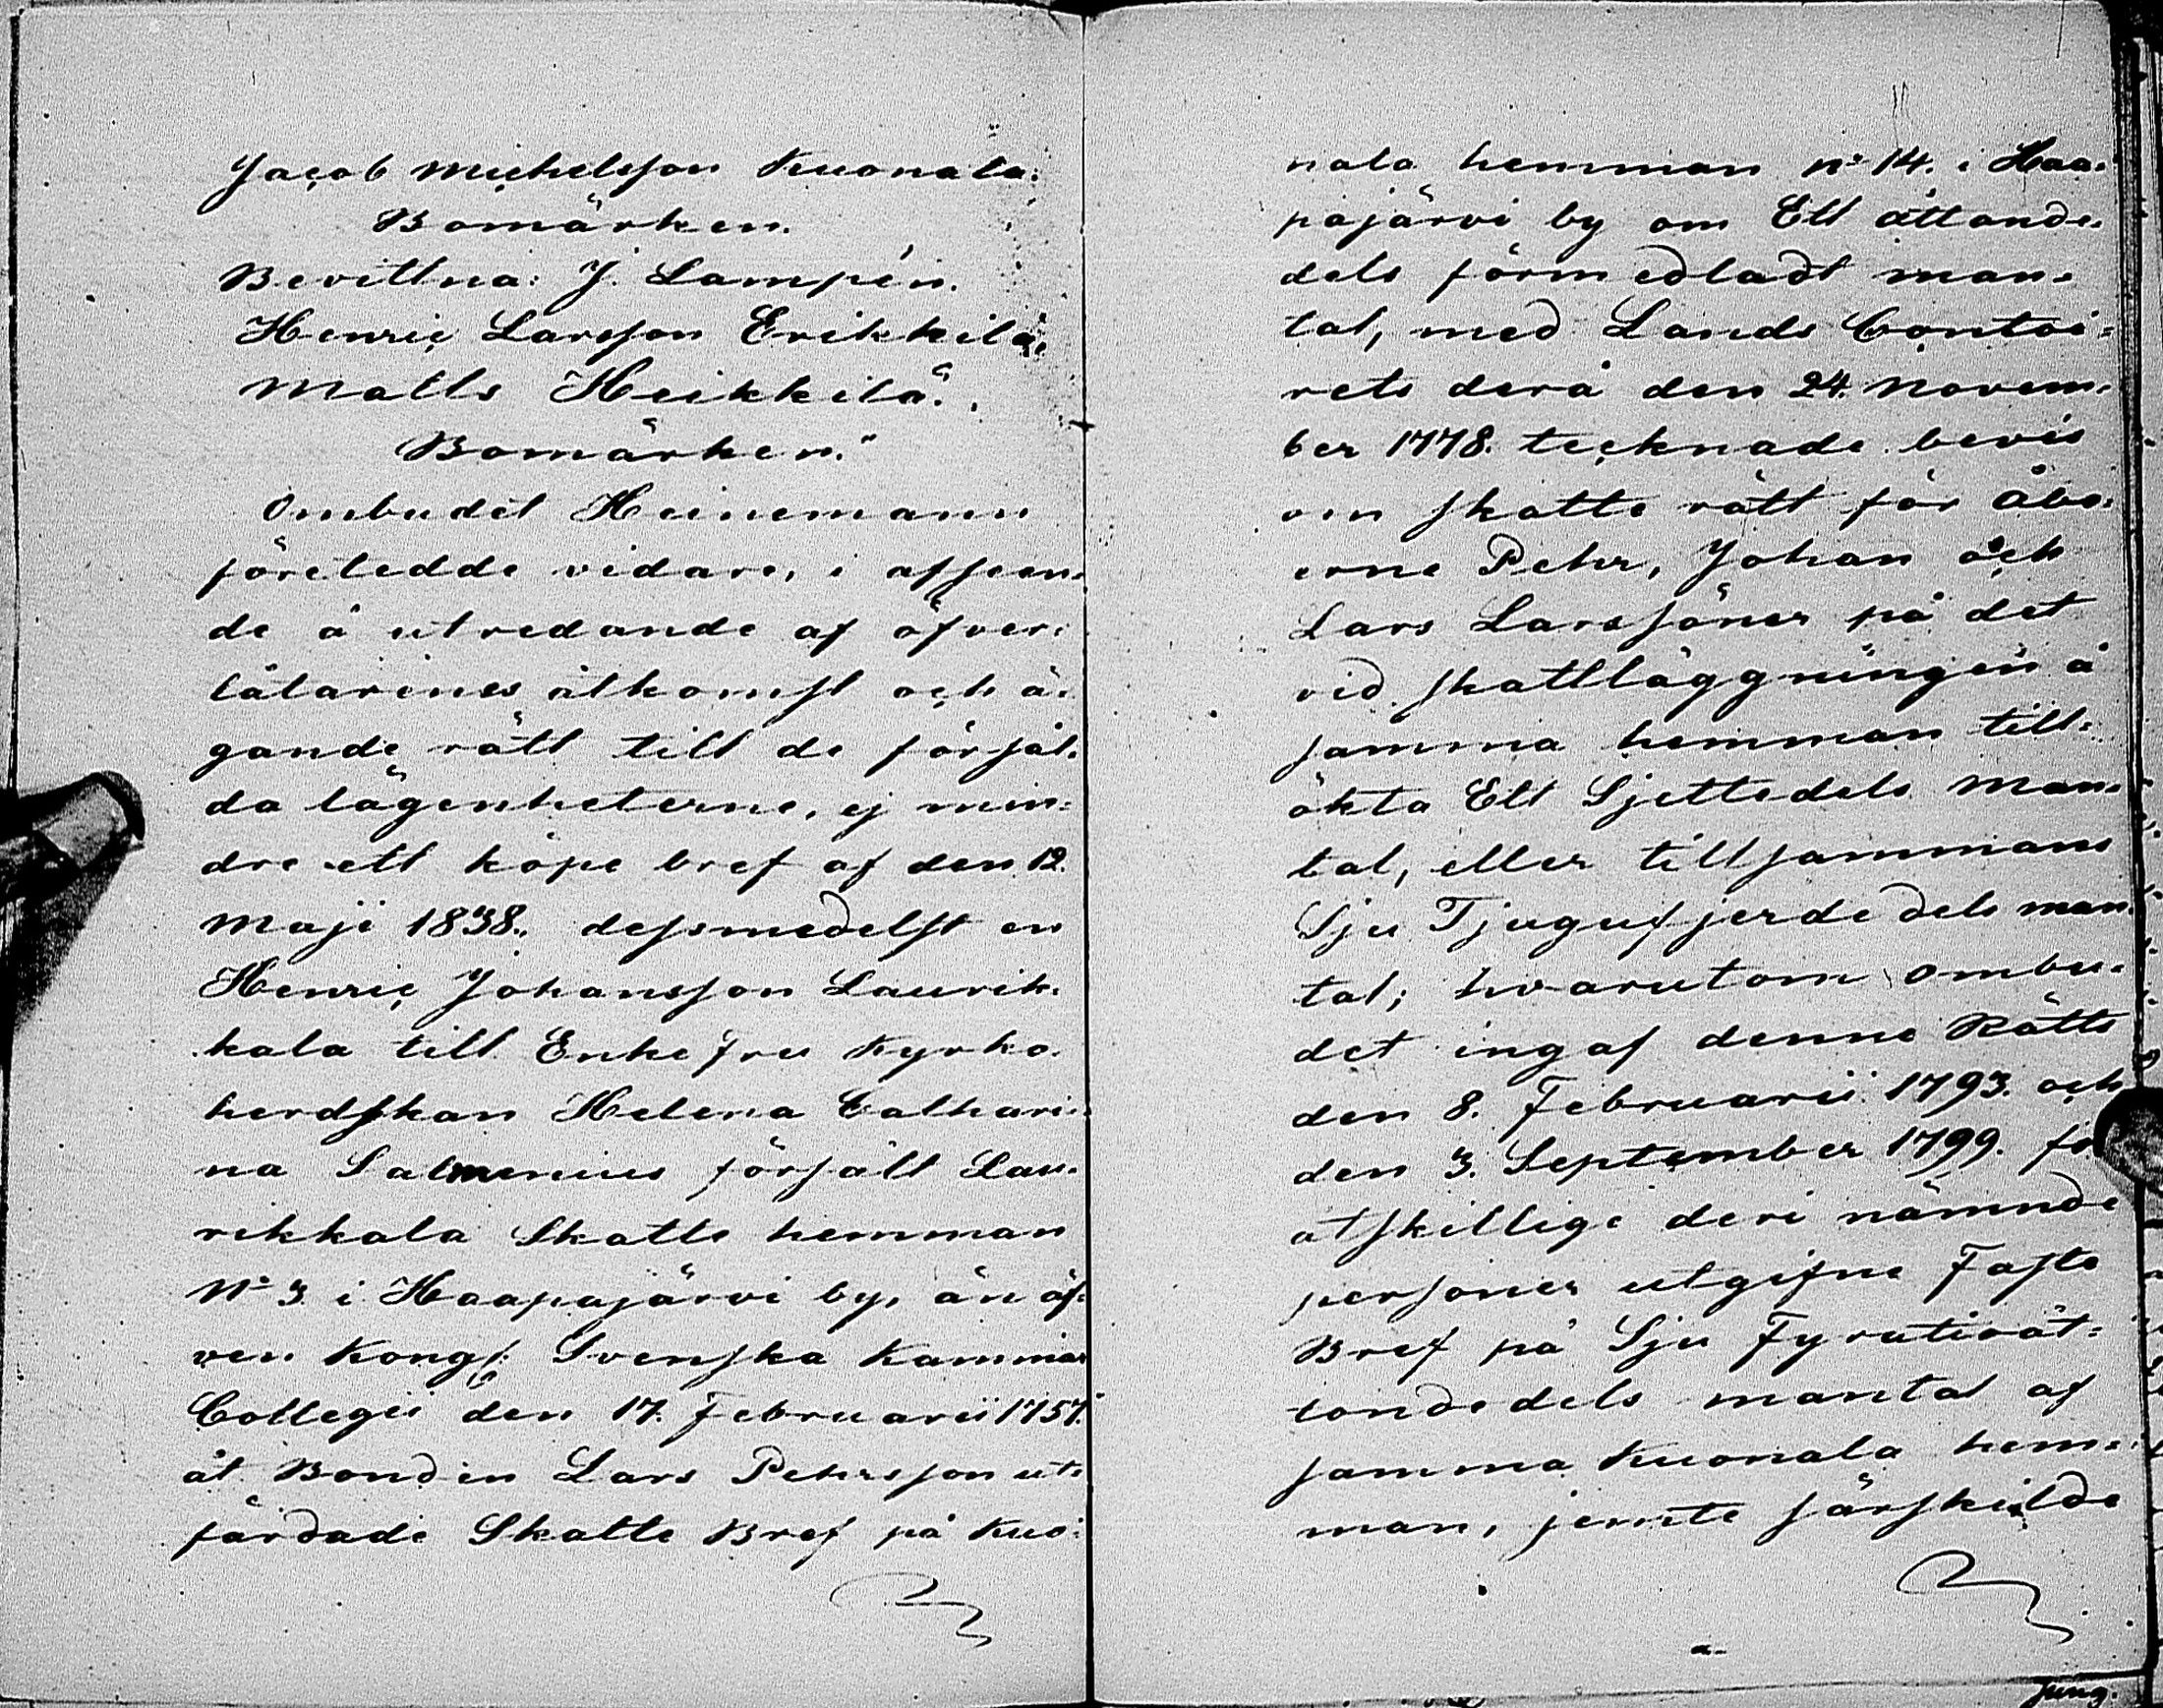 Jacob Michelsson Kuonala.
Bomärken.
Bevittna: J. Lampén.
Henric Larsson Erikkilä,
Matts Heikkilä.
Bomärken."
Ombudet Heinemann
företedde vidare, i afseen-
de å utredande af öfver-
låtarines åtkomst och ä-
gande rätt till de försål-
da lägenheterne, ej min-
dre ett köpe bref af den 12.
Maji 1838., dessmedelst en
Henric Johansson Laurik-
kala till Enkefru Kyrko-
herdskan Helena Cathari-
na Salmenius försålt Lau-
rikkala Skatte hemman
No 3 i Haapajärvi by, än äf-
ven Kongl. Svenska Kammar
Collegii den 17. Februarii 1757.
åt Bonden Lars Pehrsson ut-
färdade Skatte Bref på Kuo-
nala hemman No 14. i Haa-
pajärvi by om Ett åttonde-
dels förmedladt man-
tal, med Lands Contoi-
rets derå den 24. Novem-
ber 1778. tecknade bevis
om skatte rätt för Åbo-
erne Pehr, Johan och
Lars Larssöner på det
vid skattläggningen å
samma hemman till-
ökta Ett Sjettedels Man-
tal, eller tillsammans
Sju Tjugufjerdedels man-
tal; hvarutom ombu-
det ingaf denne Rätts
den 8. Februarii 1793. och
den 3. September 1799. för
åtskillige deri nämnde
personer utgifne Faste
Bref på Sju Fyratioåt-
tondedels mantal af
samma Kuonala hem-
man, jemte särskilde